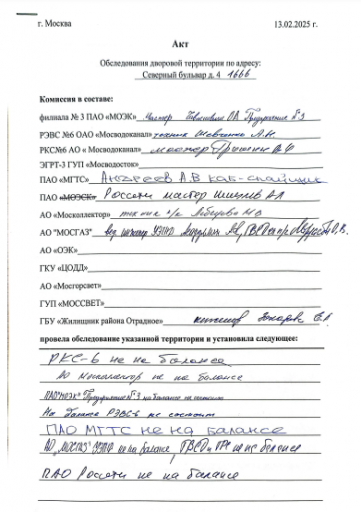 г. Москва 13.02.2025 г.
Акт
Обследования дворовой территории по адресу:
Северный бульвар д. 4
Комиссия в составе:
филиала № 3 ПАО «МОЭК» Мастер О.А. Предприятие №3
РЭВС №6 ОАО «Мосводоканал» техник Шевченко А.Н.
РКС№6 АО « Мосводоканал» мастер
ЭГРТ-3 ГУП «Мосводосток»
ПАО «МГТС» Андреев А.В каб-спайщик
ПАО «МОЭСК» Россети мастер А.А
АО «Москоллектор» техник
АО "МОСГАЗ" вед инженер
АО «ОЭК»
ГКУ «ЦОДД»
АО «Мосгорсвет»
ГУП «МОССВЕТ»
ГБУ «Жилищник района Отрадное»
провела обследование указанной территории и установила следующее:
РКС-6 не на балансе
АО Москоллектор не на балансе
ПАО "МОЭК" Предприятие №3 на балансе не состоит
На балансе РЭВС-6 не состоит
ПАО МГТС не на балансе
АО "МОСГАЗ" не на балансе, не на балансе
ПАО Россети не на балансе